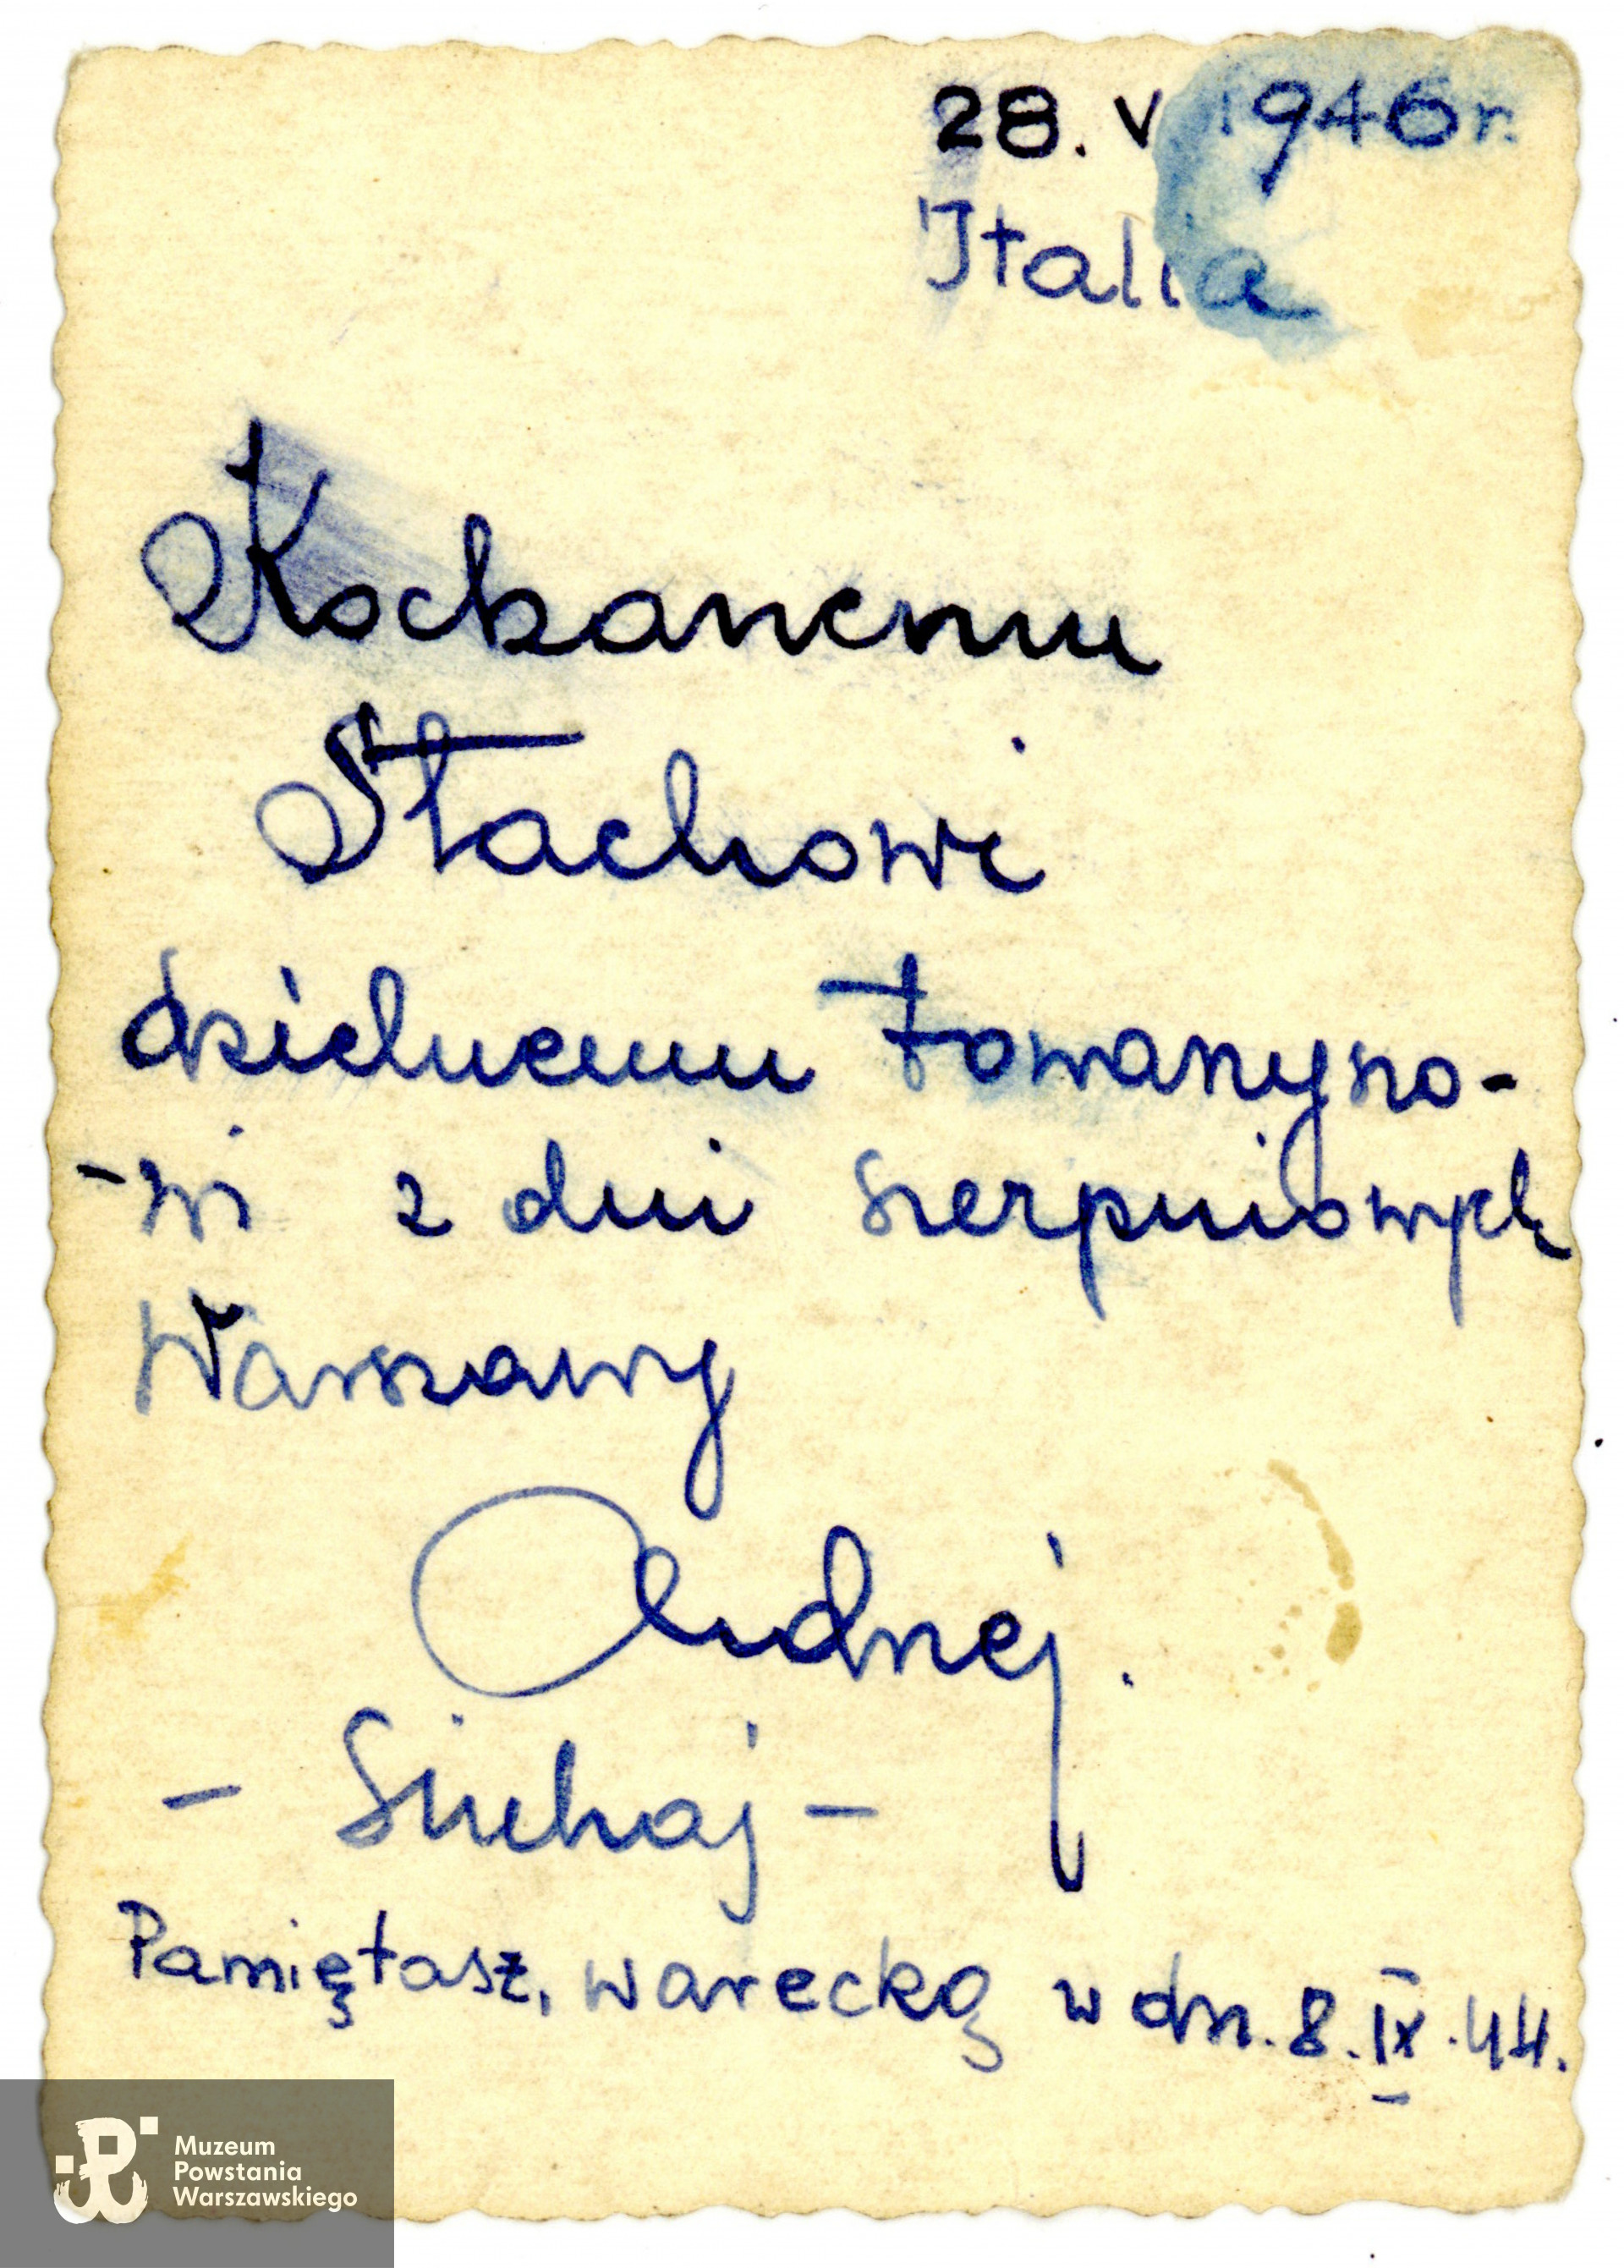 28. V 1946 r.
Italia
Kochanemu
Stachowi
dzielnemu towarzyszo-
-wi z dni sierpniowych
Warszawy
Andrzej.
- Sichaj -
Pamiętasz, warecką w dn. 8.IX.44.
Muzeum
Powstania
Warszawskiego